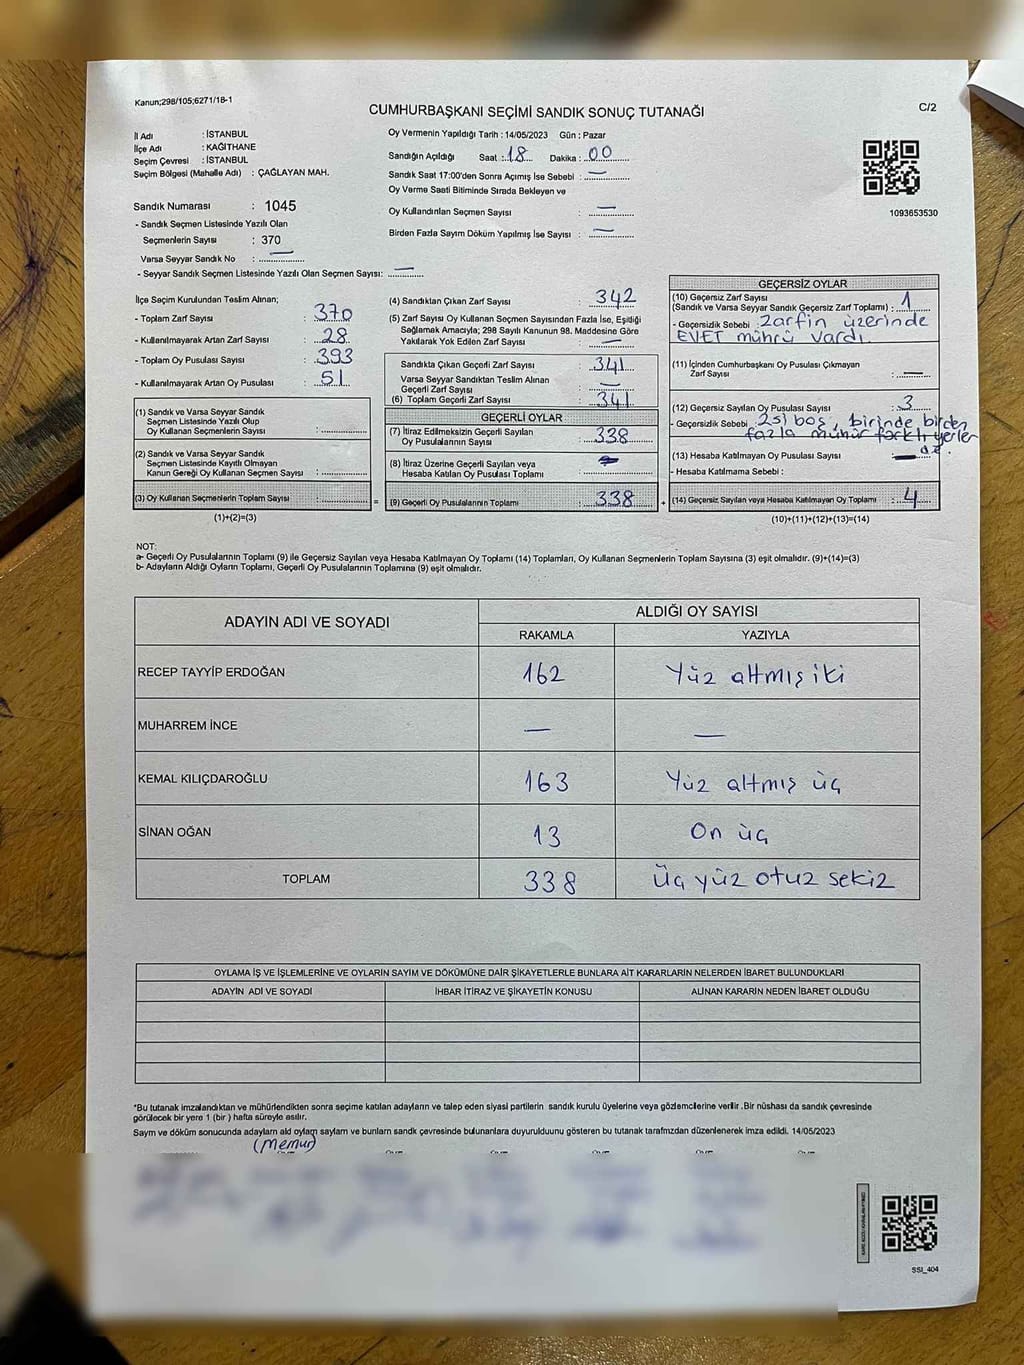 Kanun;298/105;6271/18-1
CUMHURBAŞKANI SEÇİMİ SANDIK SONUÇ TUTANAĞI
C/2
İl Adı : İSTANBUL
İlçe Adı : KAĞITHANE
Seçim Çevresi : İSTANBUL
Seçim Bölgesi (Mahalle Adı) : ÇAĞLAYAN MAH.
Sandık Numarası : 1045
- Sandık Seçmen Listesinde Yazılı Olan
Seçmenlerin Sayısı : 370
Varsa Seyyar Sandık No : —
- Seyyar Sandık Seçmen Listesinde Yazılı Olan Seçmen Sayısı: —
Oy Vermenin Yapıldığı Tarih : 14/05/2023 Gün : Pazar
Sandığın Açıldığı Saat : 18 Dakika : 00
Sandık Saat 17:00'den Sonra Açımış İse Sebebi : —
Oy Verme Saati Bitiminde Sırada Bekleyen ve
Oy Kullandırılan Seçmen Sayısı : —
Birden Fazla Sayım Döküm Yapılmış İse Sayısı : —
1093653530
İlçe Seçim Kurulundan Teslim Alınan;
- Toplam Zarf Sayısı : 370
- Kullanılmayarak Artan Zarf Sayısı : 28
- Toplam Oy Pusulası Sayısı : 393
- Kullanılmayarak Artan Oy Pusulası : 51
(1) Sandık ve Varsa Seyyar Sandık
Seçmen Listesinde Yazılı Olup
Oy Kullanan Seçmenlerin Sayısı :
(2) Sandık ve Varsa Seyyar Sandık
Seçmen Listesinde Kayıtlı Olmayan
Kanun Gereği Oy Kullanan Seçmen Sayısı :
(3) Oy Kullanan Seçmenlerin Toplam Sayısı : =
(1)+(2)=(3)
(4) Sandıktan Çıkan Zarf Sayısı : 342
(5) Zarf Sayısı Oy Kullanan Seçmen Sayısından Fazla İse, Eşitliği
Sağlamak Amacıyla; 298 Sayılı Kanunun 98. Maddesine Göre
Yakılarak Yok Edilen Zarf Sayısı : —
Sandıkta Çıkan Geçerli Zarf Sayısı : 341
Varsa Seyyar Sandıktan Teslim Alınan
Geçerli Zarf Sayısı : —
(6) Toplam Geçerli Zarf Sayısı : 341
GEÇERLİ OYLAR
(7) İtiraz Edilmeksizin Geçerli Sayılan
Oy Pusulalarının Sayısı : 338
(8) İtiraz Üzerine Geçerli Sayılan veya
Hesaba Katılan Oy Pusulası Toplamı :
(9) Geçerli Oy Pusulalarının Toplamı : 338 +
GEÇERSİZ OYLAR
(10) Geçersiz Zarf Sayısı
(Sandık ve Varsa Seyyar Sandık Geçersiz Zarf Toplamı) : 1
- Geçersizlik Sebebi : Zarfın üzerinde
EVET mührü vardı.
(11) İçinden Cumhurbaşkanı Oy Pusulası Çıkmayan
Zarf Sayısı : —
(12) Geçersiz Sayılan Oy Pusulası Sayısı : 3
- Geçersizlik Sebebi : 2si boş, birinde birden
fazla mühür farklı yerler
de.
(13) Hesaba Katılmayan Oy Pusulası Sayısı : —
- Hesaba Katılmama Sebebi :
(14) Geçersiz Sayılan veya Hesaba Katılmayan Oy Toplamı : 4
(10)+(11)+(12)+(13)=(14)
NOT:
a- Geçerli Oy Pusulalarının Toplamı (9) ile Geçersiz Sayılan veya Hesaba Katılmayan Oy Toplamı (14) Toplamları, Oy Kullanan Seçmenlerin Toplam Sayısına (3) eşit olmalıdır. (9)+(14)=(3)
b- Adayların Aldığı Oyların Toplamı, Geçerli Oy Pusulalarının Toplamına (9) eşit olmalıdır.
ADAYIN ADI VE SOYADI
ALDIĞI OY SAYISI
RAKAMLA YAZIYLA
RECEP TAYYİP ERDOĞAN 162 Yüz altmış iki
MUHARREM İNCE — —
KEMAL KILIÇDAROĞLU 163 Yüz altmış üç
SİNAN OĞAN 13 On üç
TOPLAM 338 Üç yüz otuz sekiz
OYLAMA İŞ VE İŞLEMLERİNE VE OYLARIN SAYIM VE DÖKÜMÜNE DAİR ŞİKAYETLERLE BUNLARA AİT KARARLARIN NELERDEN İBARET BULUNDUKLARI
ADAYIN ADI VE SOYADI İHBAR İTİRAZ VE ŞİKAYETİN KONUSU ALINAN KARARIN NEDEN İBARET OLDUĞU
*Bu tutanak imzalandıktan ve mühürlendikten sonra seçime katılan adayların ve talep eden siyasi partilerin sandık kurulu üyelerine veya gözlemcilerine verilir .Bir nüshası da sandık çevresinde
görülecek bir yere 1 (bir ) hafta süreyle asılır.
Sayım ve döküm sonucunda adayların ald oyların sayıları ve bunların sandk çevresinde bulunanlara duyurulduunu gösteren bu tutanak tarafmzdan düzenlenerek imza edildi. 14/05/2023
(memur)
SSI_404